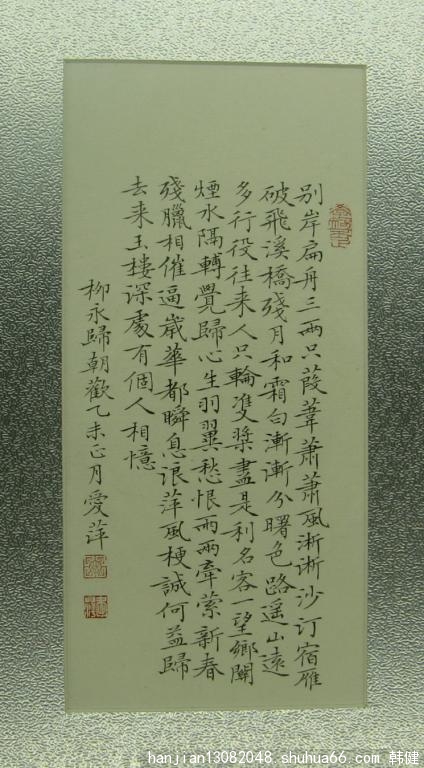 别岸扁舟三两只葭葦蕭蕭風淅淅沙汀宿雁
破飛溪橋殘月和霜白漸漸分曙色路遥山遠
多行役往来人只輪雙槳盡是利名客一望鄉關
煙水隔轉覺歸心生羽翼愁恨雨兩牽縈新春
殘臘相催逼歲華都瞬息浪萍風梗誠何益歸
去来玉樓深處有個人相憶
柳永歸朝歡乙未正月愛萍
hanjian13082048 shuhua66.com 韩健